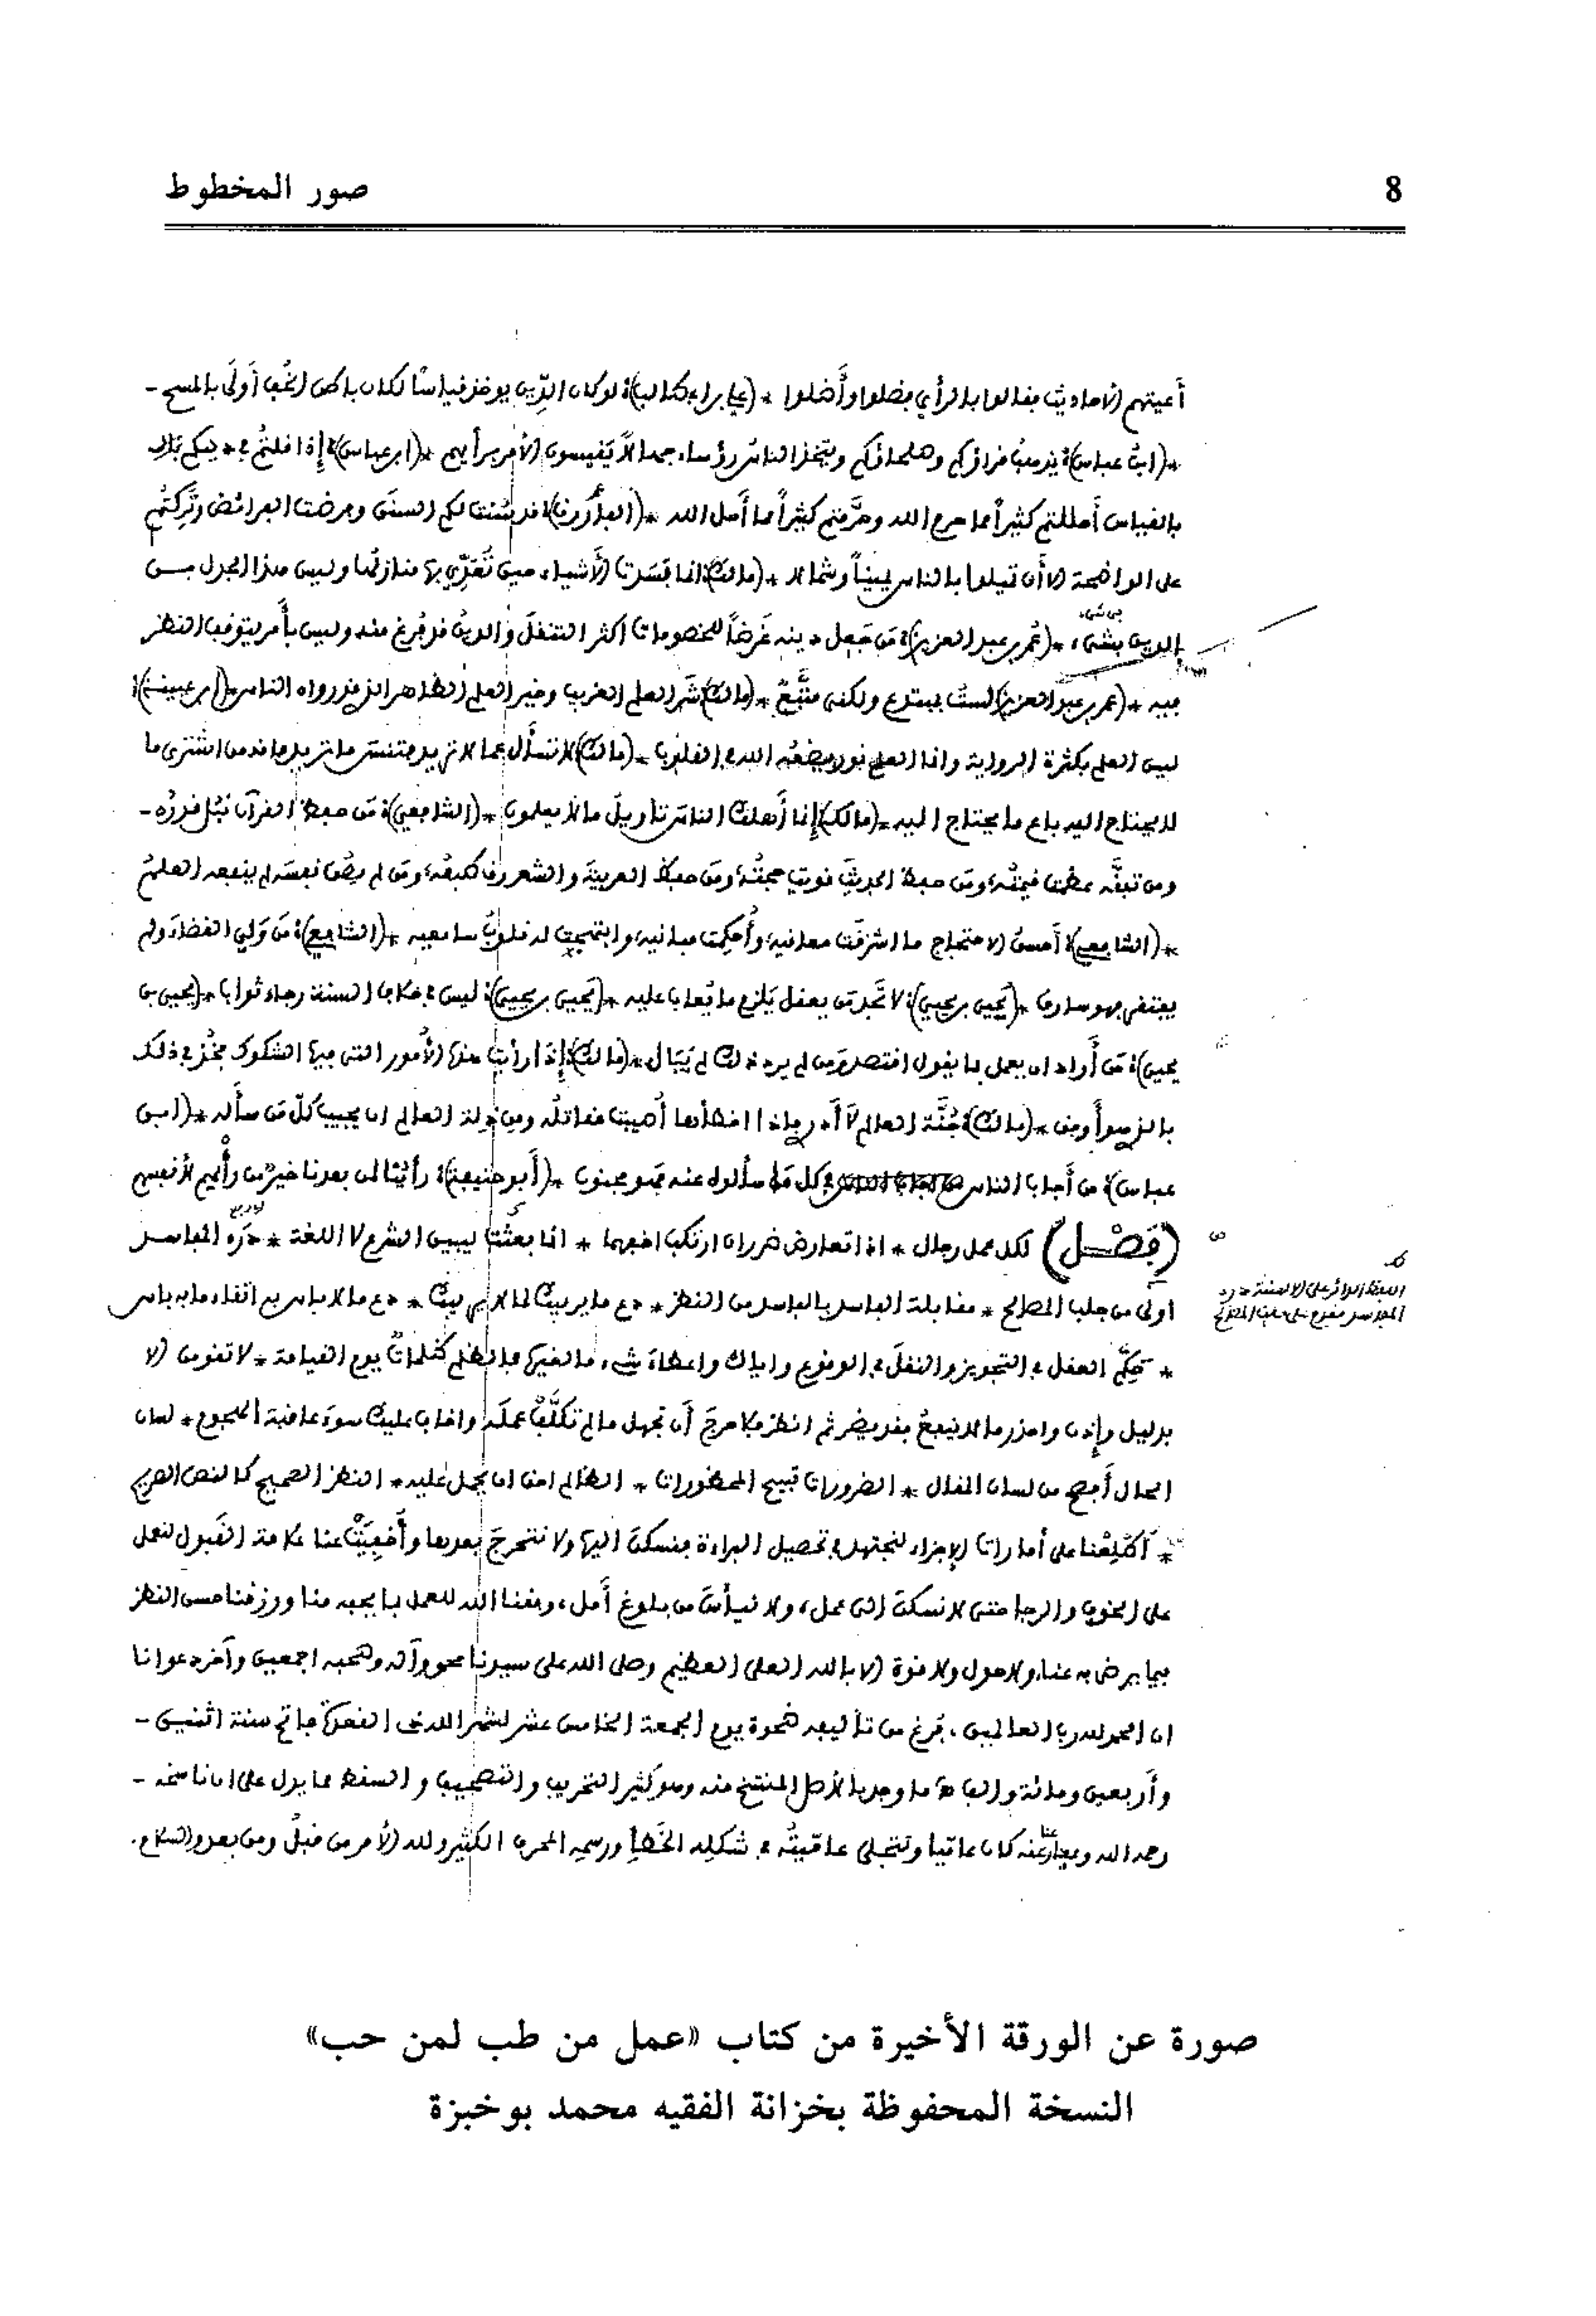 8
صور المخطوط
أعيتهم الأحاديث فقالوا بالرأي فضلوا وأضلوا * (علي بن أبي طالب): لو كان الدين يوخذ قياسًا لكان باطن الخف أولى بالمسح -
* (ابن عباس): يذهب قراؤكم وصلحاؤكم ويتخذ الناس رؤساء جهالا يقيسون الأمر برأيهم * (ابن عباس): إذا قلتم في دينكم
بالقياس أحللتم كثيراً مما حرم الله وحرَّمتم كثيراً مما أحل الله * (الفاروق): قد سُنت لكم السنن وفرضت الفرائض وتُركتم
على الواضحة إلا أن تميلوا بالناس يميناً وشمالا * (مالك): انما فسدت الأشياء حين تُعُدِّي بها منازلها وليس هذا الجدل من
الدين بشيء * (عمر بن عبد العزيز): من جعل دينه غرضاً للخصومات أكثر التنقل والدين قد فُرغ منه وليس بأمر يتوقف النظر
فيه * (عمر بن عبد العزيز): لستُ بمبتدع ولكني متَّبع * (مالك): شر العلم الغريب وخير العلم الظاهر الذي قد رواه الناس * (ابن عيينة):
ليس العلم بكثرة الرواية وانما العلم نور يضعه الله في القلوب * (مالك): لا تسأل عما لا تريد فتنسى ما تريد فانه من اشترى ما
لا يحتاج اليه باع ما يحتاج اليه * (مالك): إنما أهلك الناس تاويل ما لا يعلمون * (الشافعي): من حفظ القرآن نبُل قدره -
ومن تفقَّه عظمت قيمته، ومن حفظ الحديث قويت حجته، ومن حفظ العربية والشعر رق طبعه، ومن لم يصن نفسه لم ينفعه العلم
* (الشافعي): أحسن الاحتجاج ما اشرقت معانيه، وأُحكمت مبانيه، وابتهجت له قلوب سامعيه * (الشافعي): من ولي القضاء ولم
يفتقر فهو سارق * (يحيى بن يحيى): لا تجد من يعقل يلزم ما يُعاب عليه * (يحيى بن يحيى): ليس في خلاف السنة رجاء ثواب * (يحيى بن
يحيى): من أراد ان يعمل بما يقول اقتصد ومن لم يرد ذلك لم يبال * (مالك): إذا رأيت هذه الأمور التي فيها الشكوك فخذ في ذلك
بالذي هو أوفق * (مالك): جُنَّة العالم لا أدري فإذا اخطأها أصيبت مقاتله ومن إذلة العالم ان يجيب كلّ من سأله * (ابن
عباس): من أجاب الناس في كل ما سألوه عنه فهو مجنون * (أبو حنيفة): رأينا لمن بعدنا خير من رأيهم لأنفسهم
(فصْل) لكل عمل رجال * اذا تعارض ضرران ارتكب اخفهما * انما بعثت ليبين الشرع لا اللغة * درء المفاسد
اولى من جلب المصالح * مقابلة الفاسد بالفاسد من النظر * دع ما يريبك لما لا يريبك * دع ما لا باس به اتقاء ما به باس
* حكِّم العقل في التجويز والنقل في الوقوع واياك واعطاء شيء ما لغيره فالظلم ظلمات يوم القيامة * لا تقومن إلا
بدليل وإذن واحذر ما لا ينفع فقد يضر ثم انظر فلا حرج أن تجهل ما لم تكلَّف عمله واخاف عليك سوء عاقبة الهجوم * لسان
الحال أفصح من لسان المقال * الضرورات تبيح المحظورات * الظالم احق ان يحمل عليه * النظر الصحيح كالنص الصريح
* أطلعنا على أمارات الإجزاء لنجتهد في تحصيل البراءة فنسكن اليها ولا نتحرج بعدها وأُخفِيَتْ عنا علامة القبول لنعمل
على الخوف والرجا حتى لا نسكن إلى عمل، ولا نيأس من بلوغ أمل، وفقنا الله للعمل بما يحبه منا ورزقنا حسن النظر
فيما يرضى به عنا، ولا حول ولا قوة إلا بالله العلي العظيم وصلى الله على سيدنا محمد وآله وصحبه اجمعين وآخر دعوانا
ان الحمد لله رب العالمين، فرغ من تأليفه ضحوة يوم الجمعة الخامس عشر لشهر الله ذي القعدة فاتح سنة اثنين -
وأربعين ومائة والف ما وجد بالأصل المنتسخ منه وهو كثير التحريف والتصحيف والسقط مما يدل على ان ناسخه -
رحمه الله وعفا عنا وعنه كان عاميا وتتجلى عاميته في شكله الخطأ ورسمه المحرف الكثير ولله الأمر من قبل ومن بعد والسلام.
صورة عن الورقة الأخيرة من كتاب «عمل من طب لمن حب»
النسخة المحفوظة بخزانة الفقيه محمد بوخبزة